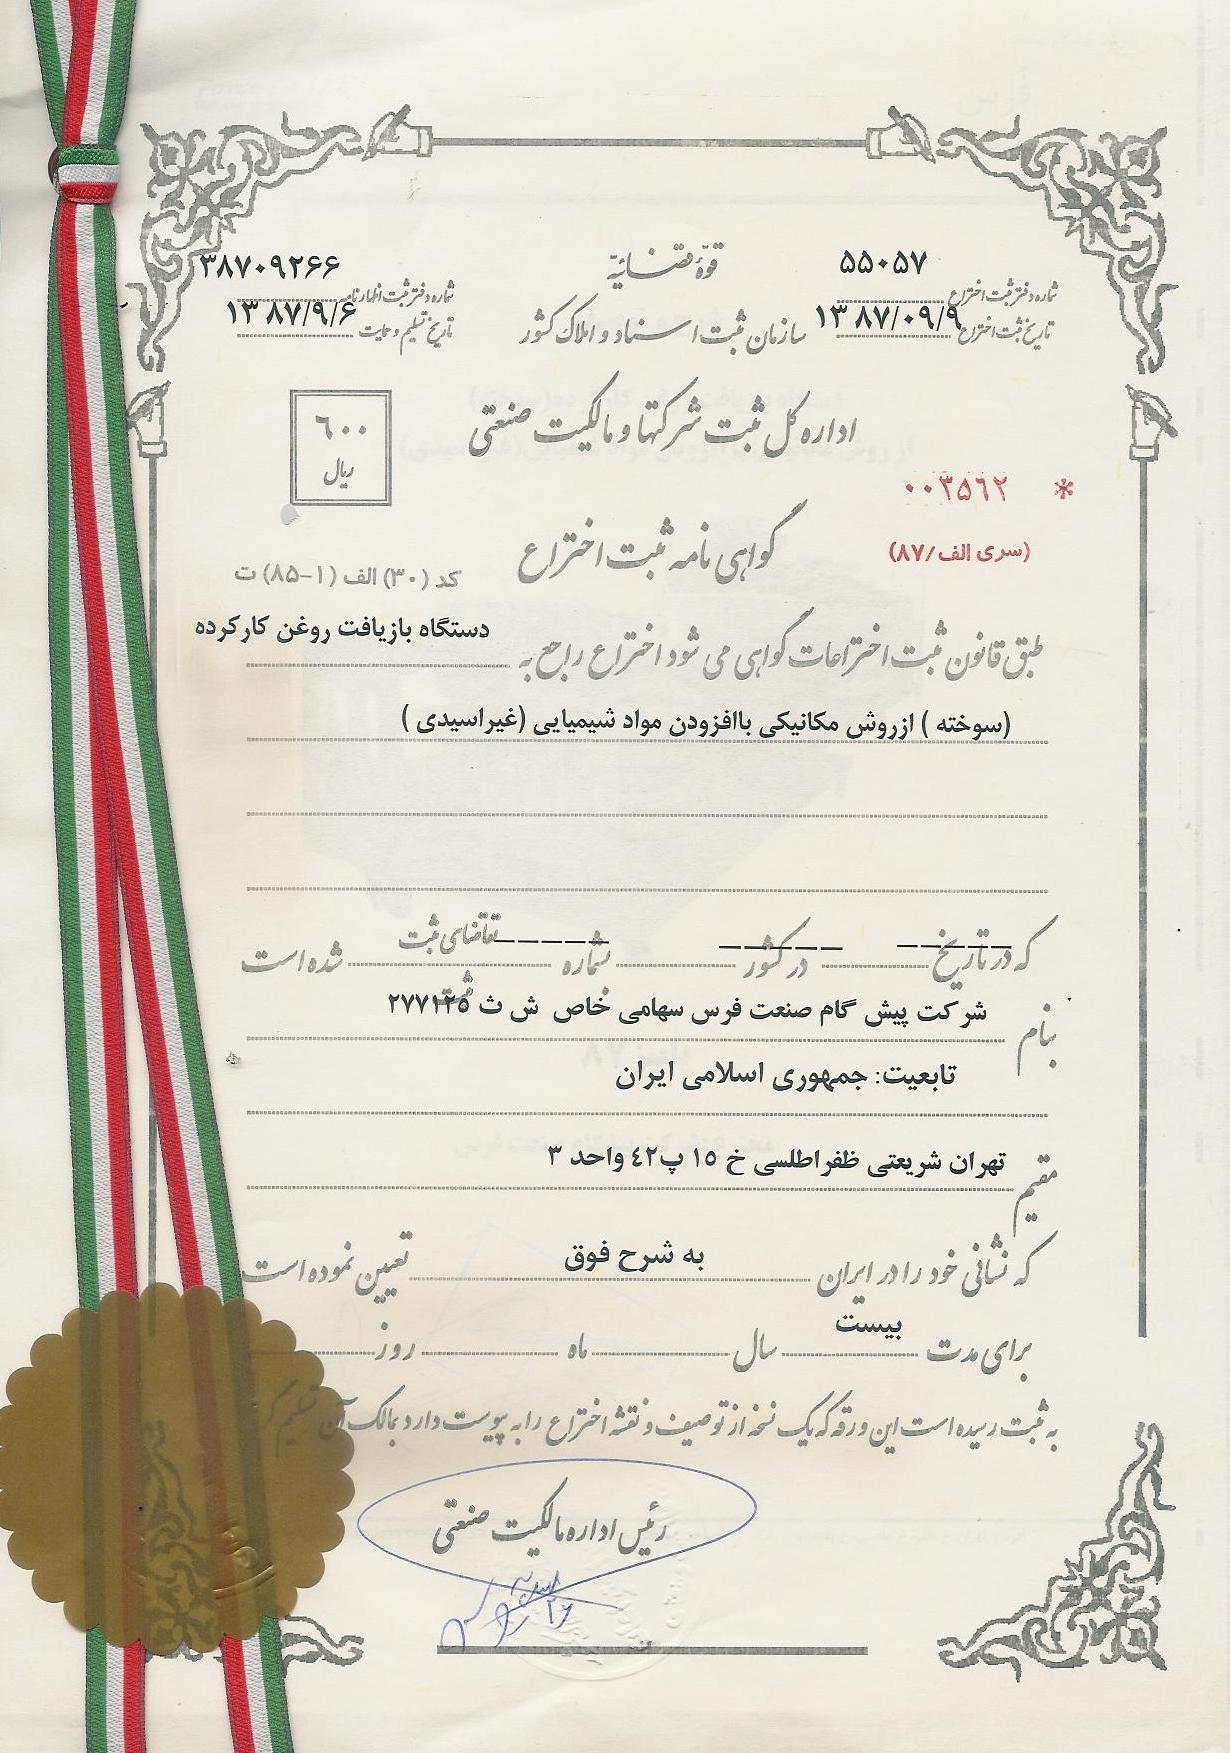 قوّهٔ قضائیّه
۵۵۰۵۷
شماره دفتر ثبت اختراع
۱۳۸۷/۰۹/۹
تاریخ ثبت اختراع
سازمان ثبت اسناد و املاک کشور
۳۸۷۰۹۲۶۶
شماره دفتر ثبت اظهارنامه
۱۳۸۷/۹/۶
تاریخ تسلیم و حمایت
اداره کل ثبت شرکتها و مالکیت صنعتی
۶۰۰
ریال
* ۰۰۳۵۶۲
(سری الف/۸۷)
گواهی نامه ثبت اختراع
کد (۳۰) الف (۱-۸۵) ت
طبق قانون ثبت اختراعات گواهی می شود اختراع راجع به دستگاه بازیافت روغن کارکرده
(سوخته ) ازروش مکانیکی باافزودن مواد شیمیایی (غیراسیدی )
که در تاریخ ------ در کشور ------ شماره ------ تقاضای ثبت شده است
بنام شرکت پیش گام صنعت فرس سهامی خاص ش ث ۲۷۷۱۲۵
تابعیت: جمهوری اسلامی ایران
مقیم تهران شریعتی ظفر اطلسی خ ۱۵ پ۴۲ واحد ۳
که نشانی خود را در ایران به شرح فوق تعیین نموده است
برای مدت بیست سال ماه روز
به ثبت رسیده است این ورقه که یک نسخه از توصیف و نقشه اختراع را به پیوست دارد بمالک آن تسلیم
رئیس اداره مالکیت صنعتی